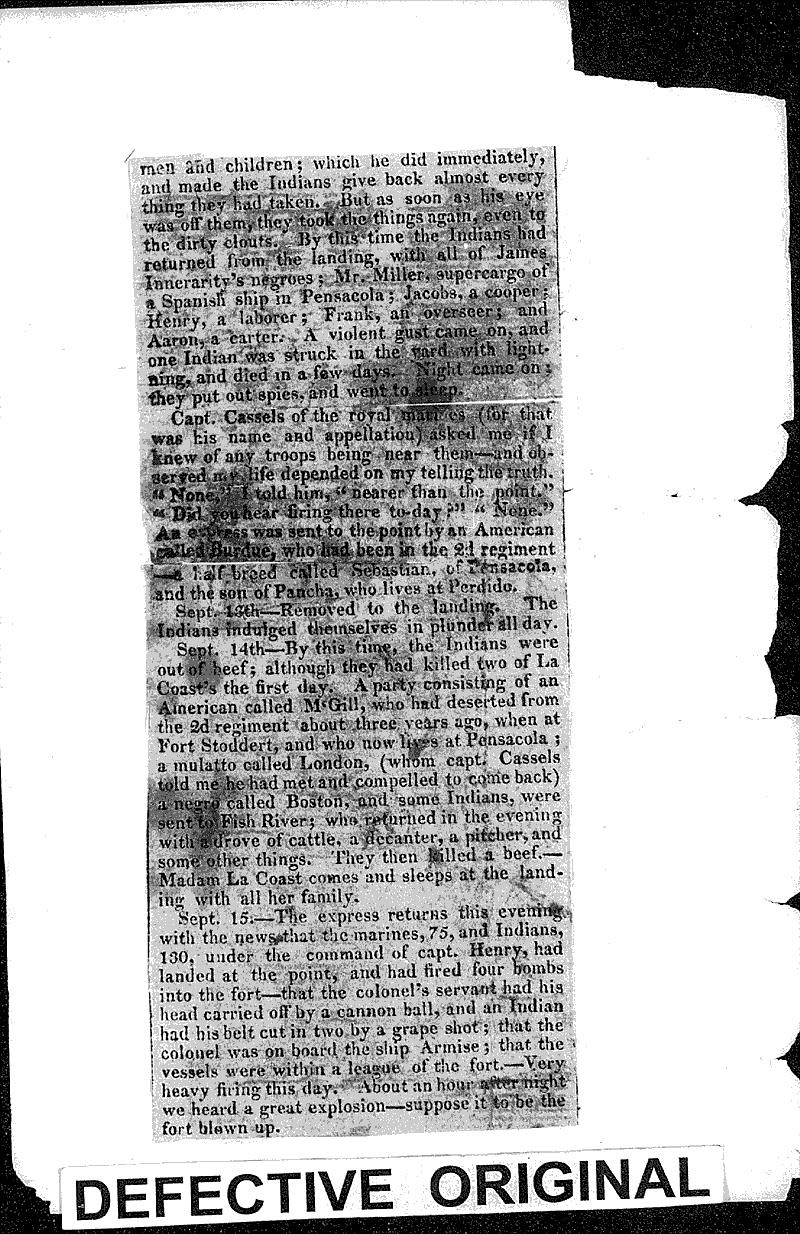 men and children; which he did immediately,
and made the Indians give back almost every
thing they had taken. But as soon as his eye
was off them, they took the things again, even to
the dirty clouts. By this time the Indians had
returned from the landing, with all of James
Innerarity's negroes; Mr. Miller, supercargo of
a Spanish ship in Pensacola; Jacobs, a cooper;
Henry, a laborer; Frank, an overseer; and
Aaron, a carter. A violent gust came on, and
one Indian was struck in the yard with light-
ning, and died in a few days. Night came on;
they put out spies, and went to sleep.
Capt. Cassels of the royal marines (for that
was his name and appellation) asked me if I
knew of any troops being near them—and ob-
served my life depended on my telling the truth.
"None," I told him, "nearer than the point."
"Did you hear firing there to-day?" "None."
An express was sent to the point by an American
called Burdue, who had been in the 2d regiment
—a half breed called Sebastian, of Pensacola,
and the son of Pancha, who lives at Perdido.
Sept. 13th—Removed to the landing. The
Indians indulged themselves in plunder all day.
Sept. 14th—By this time, the Indians were
out of beef; although they had killed two of La
Coast's the first day. A party consisting of an
American called M'Gill, who had deserted from
the 2d regiment about three years ago, when at
Fort Stoddert, and who now lives at Pensacola;
a mulatto called London, (whom capt. Cassels
told me he had met and compelled to come back)
a negro called Boston, and some Indians, were
sent to Fish River; who returned in the evening
with a drove of cattle, a decanter, a pitcher, and
some other things. They then killed a beef.—
Madam La Coast comes and sleeps at the land-
ing with all her family.
Sept. 15.—The express returns this evening
with the news that the marines, 75, and Indians,
130, under the command of capt. Henry, had
landed at the point, and had fired four bombs
into the fort—that the colonel's servant had his
head carried off by a cannon ball, and an Indian
had his belt cut in two by a grape shot; that the
colonel was on board the ship Armise; that the
vessels were within a league of the fort.—Very
heavy firing this day. About an hour after night
we heard a great explosion—suppose it to be the
fort blown up.
DEFECTIVE ORIGINAL